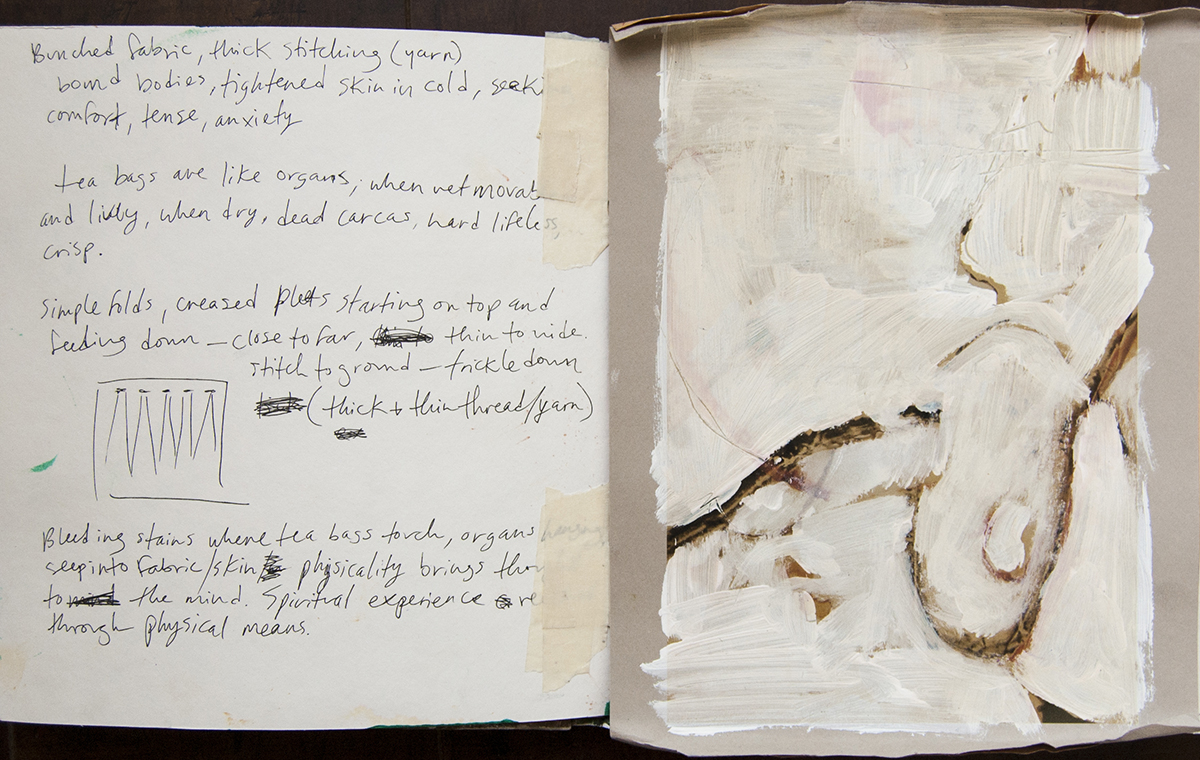 Bunched fabric, thick stitching (yarn)
bound bodies, tightened skin in cold, seeki
comfort, tense, anxiety
tea bags are like organs, when wet movab
and lively, when dry, dead carcas, hard lifeless,
crisp.
Simple folds, creased starting on top and
feeding down — close to far, thin to wide.
stitch to ground — trickle down
(thick + thin thread/yarn)
Bleeding stains where tea bags touch, organs
seep into fabric/skin physicality brings thou
to the mind. Spiritual experience re
through physical means.